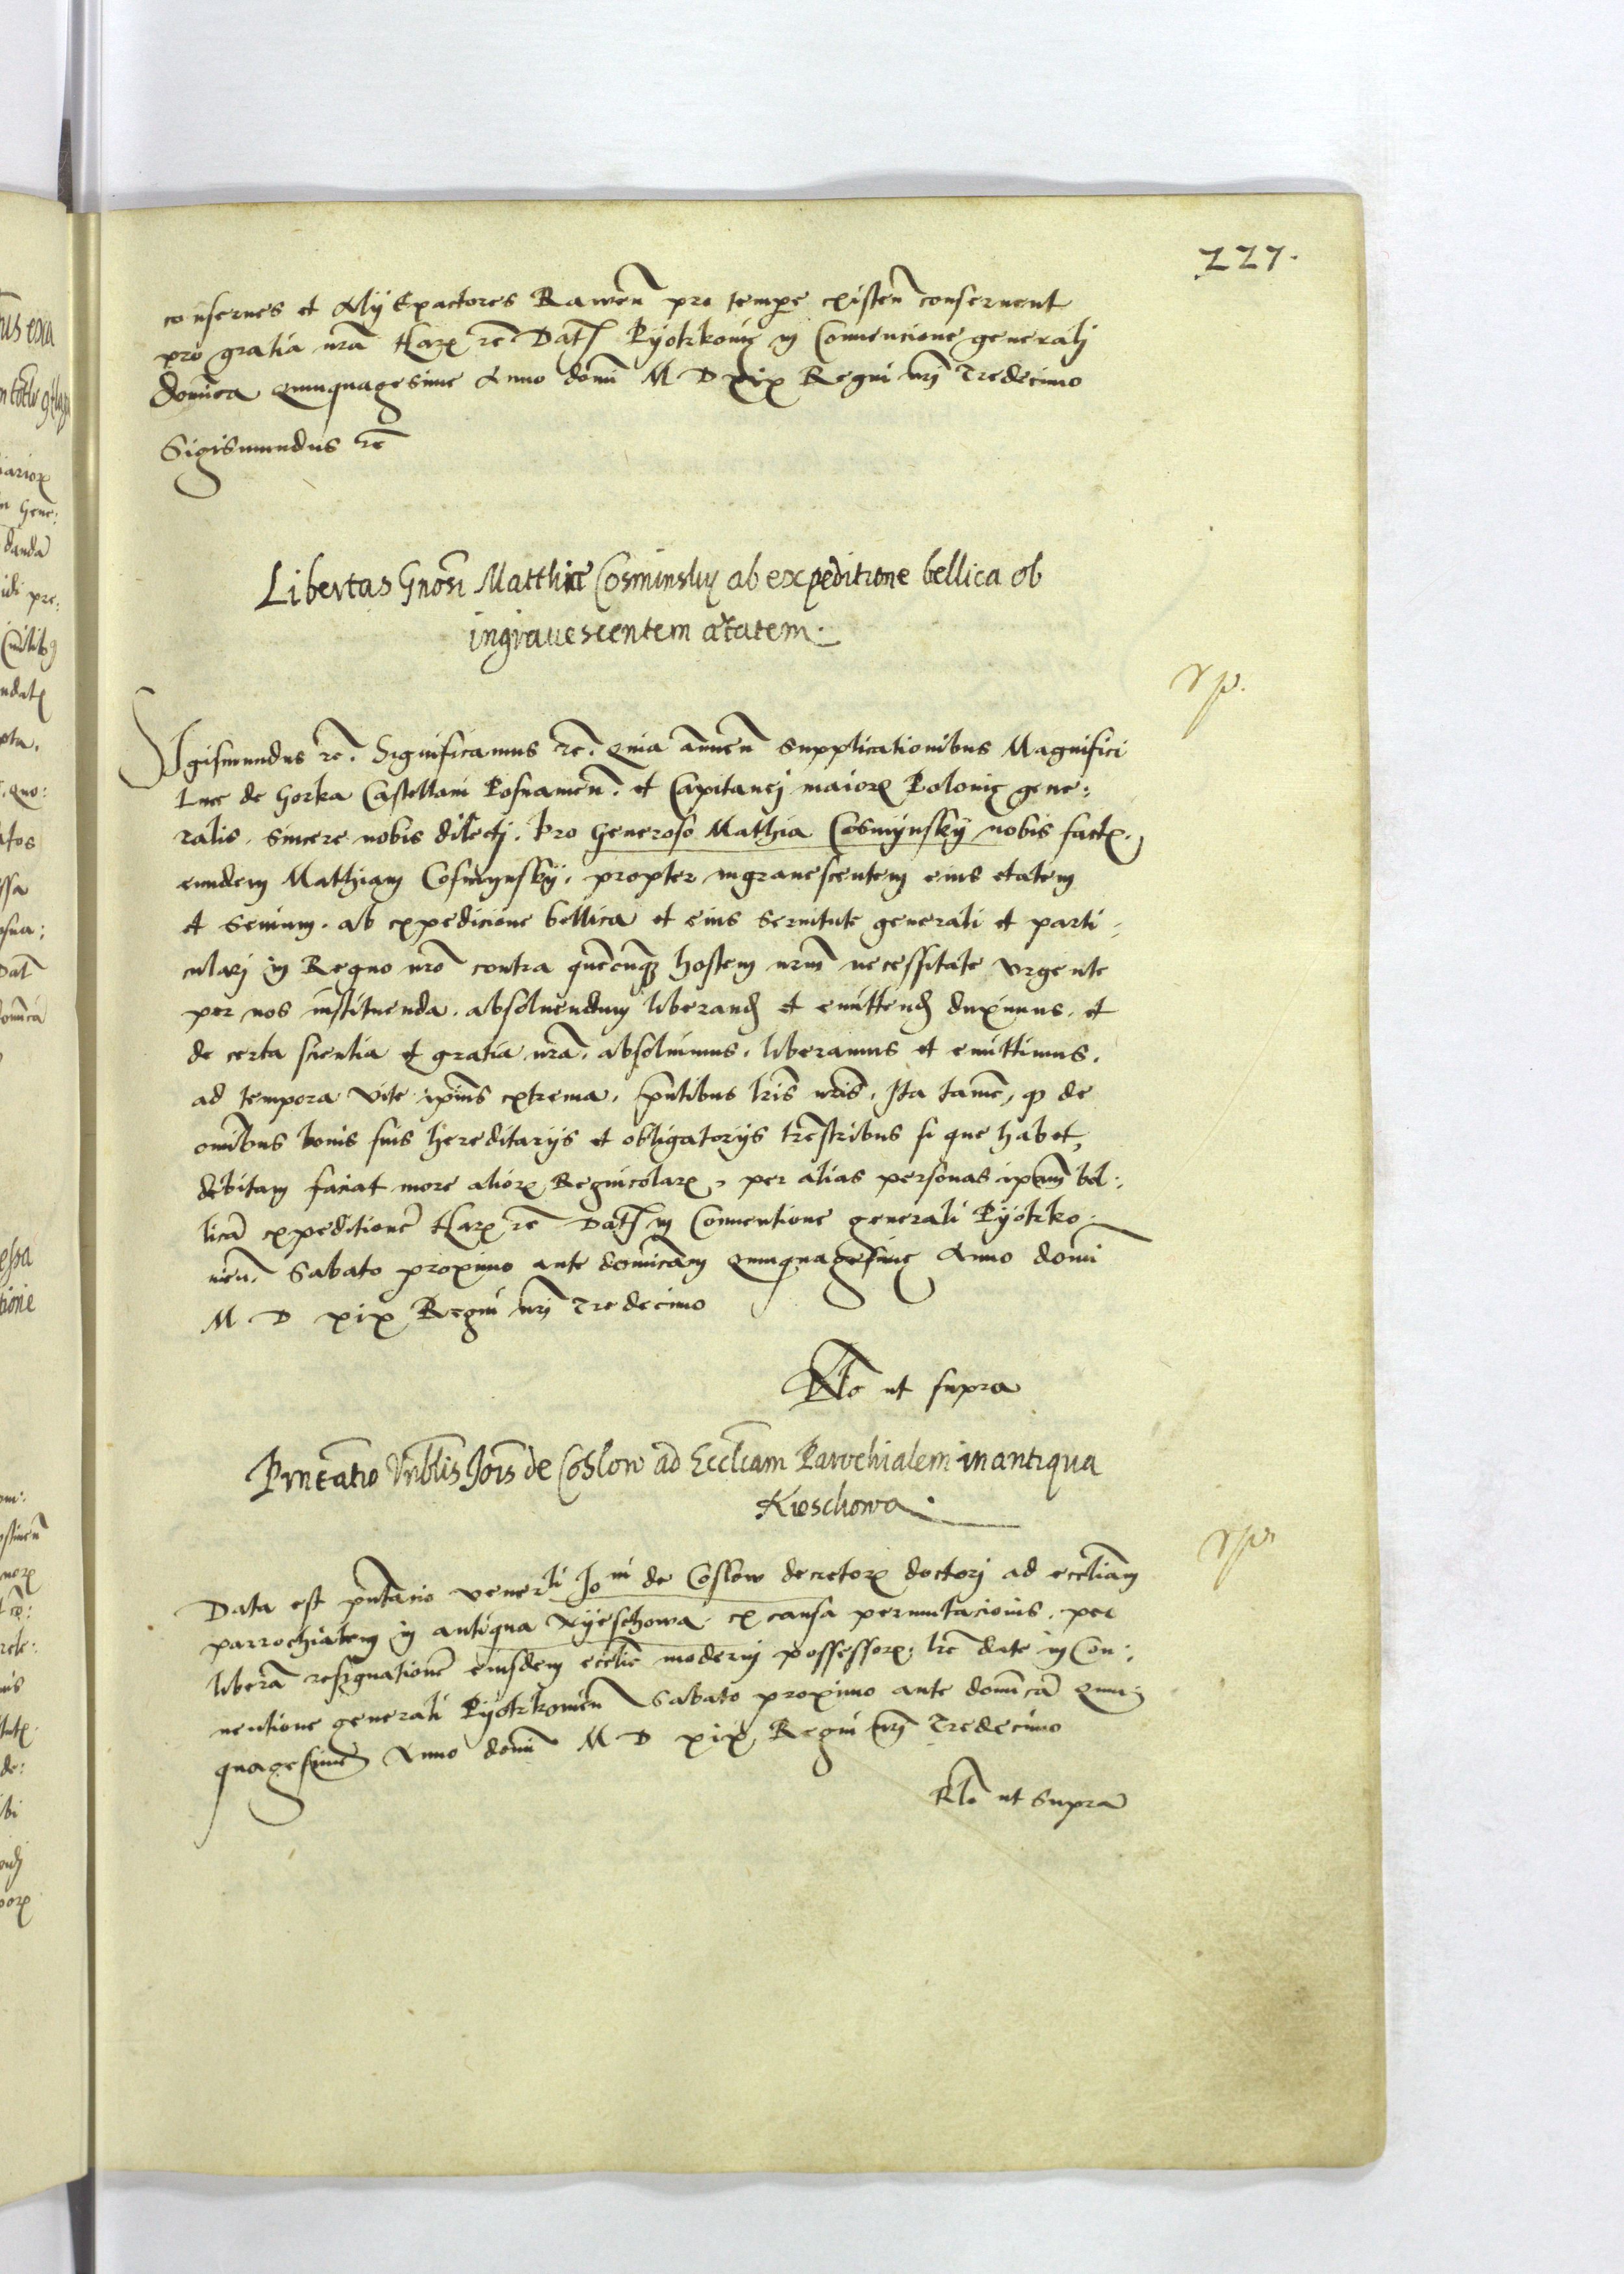 227.
conserues et Alÿ Exactores Rawen̄ pro tempe existen̄ conseruent
pro gratia nrā Harꝝ rē Datꝭ Pÿotrkouie in Conuencione generalj
domīca quinquagesime Anno domī M D xix Regni nrj Tredecimo
Sigismundus rē
Libertas Gnosī Matthiæ Cosminsky ab expeditione bellica ob
ingrauescentem ætatem.
Sigismundus rē. Significamus rē. Quia annuen̄ Supplicationibus Magnifici
Luce de Gorka Castellani Posnanien̄. et Capitanej maiorꝝ Polonię gene:
ralis. sincere nobis dilectj. Pro Generoso Mathia Cosmÿnskÿ nobis factꝭ.
eundem Mathiam Cosmÿnskÿ. propter ingrauescentem eius etatem
et Senium. ab expedicione bellica et eius Seruitute generali et parti:
cularj in Regno nrō contra quēcunqꝫ hostem nrm̄ necessitate vrgente
per nos instituenda. absoluendum liberandꝭ et emittendꝭ duximus. et
de certa scientia et gratia nrā. absoluimus. liberamus et emittimus.
ad tempora vite ipiūs extrema. pn̄tibus lrīs nrīs. Ita tamē, ꝙ de
omībus bonis suis hereditarÿs et obligatorÿs trēstribus si que habet,
debitam faciat more aliorꝝ Regnicolarꝝ, per alias personas ipam̄ bel:
licā expeditionē Harꝝ rē Datꝭ in Conuentione generali Pÿotrko:
uien̄. Sabato proximo ante domīcam quinquagesimę Anno domī
M D xix Regni nrj Tredecimo
Rlo ut supra
Prn̄tatio Vnblīs Joīs de Coslow ad Ecclīam Parrochialem in antiqua
Rzeschowa.
Data est pn̄tatio vener^li Jo^ni de Coslow decretorꝝ doctorj ad eccliām
parrochialem in antiqua Rzÿeschowa. ex causa permutacionis. per
liberā resignationē eiusdem ecclīe modernj possessorꝭ. lrē date in Con:
uentione generali Pÿotrkouien̄ Sabato proximo ante domīcā quin:
quagesime Anno domī M D xix Regni nrj Tredecimo
Rlō ut Supra